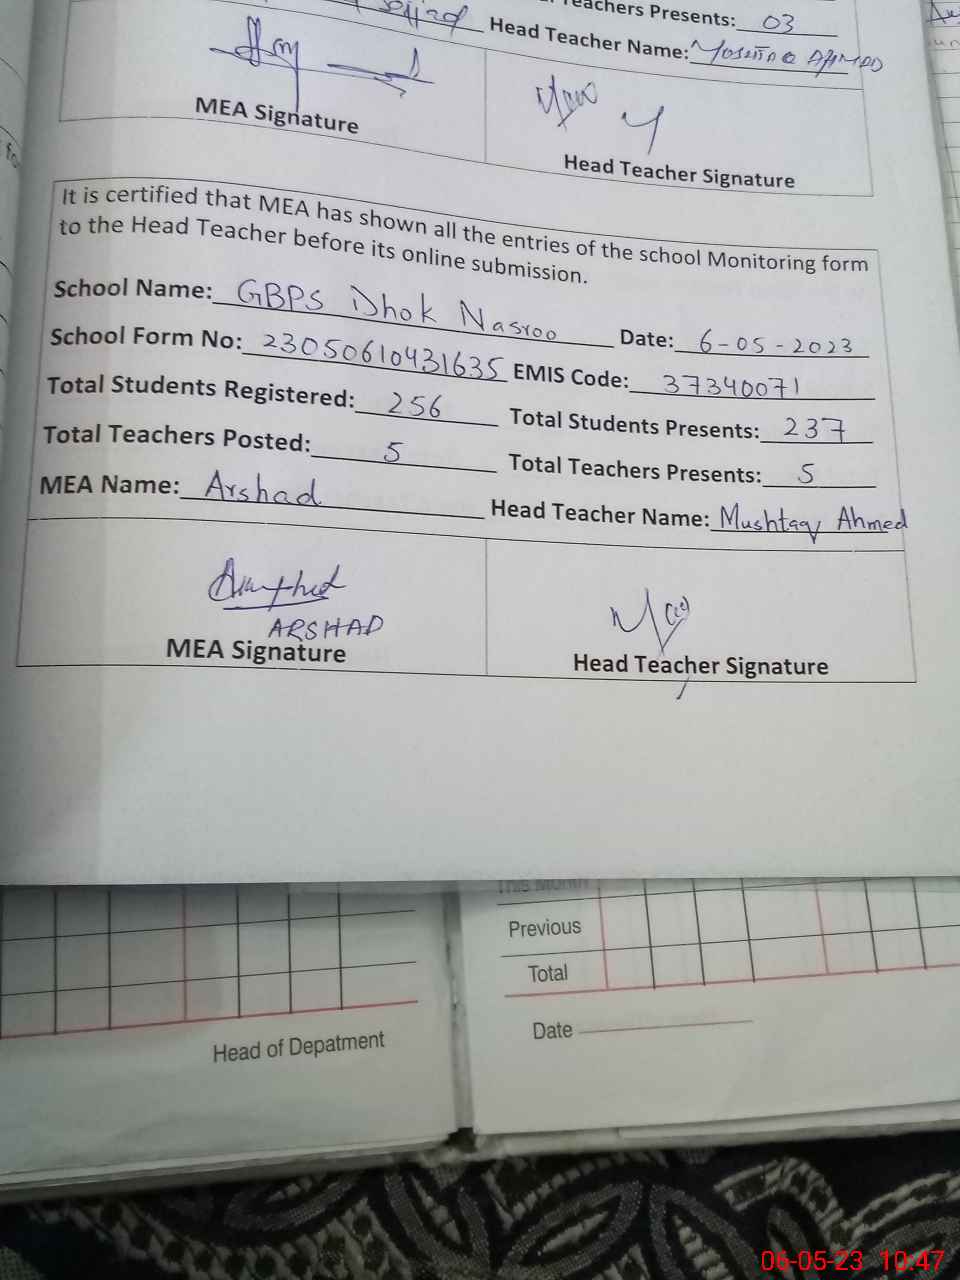 Teachers Presents: 03
Head Teacher Name:
MEA Signature
Head Teacher Signature
It is certified that MEA has shown all the entries of the school Monitoring form
to the Head Teacher before its online submission.
School Name: GBPS Dhok Nasroo Date: 6-05-2023
School Form No: 23050610431635 EMIS Code: 37340071
Total Students Registered: 256 Total Students Presents: 237
Total Teachers Posted: 5 Total Teachers Presents: 5
MEA Name: Arshad Head Teacher Name: Mushtaq Ahmed
ARSHAD
MEA Signature
Head Teacher Signature
This Month
Previous
Total
Head of Depatment
Date
06-05-23 10:47